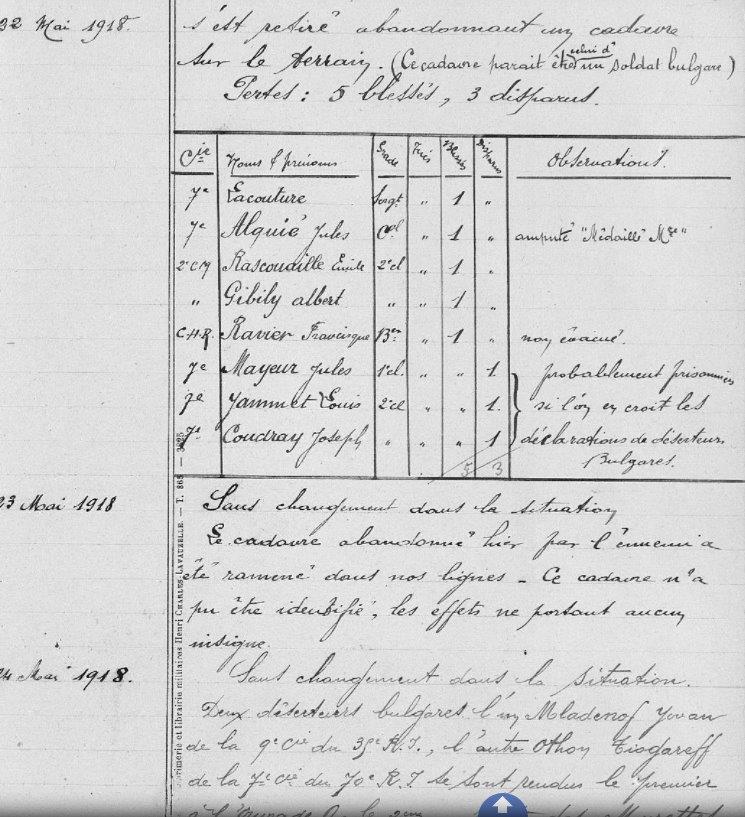 22 Mai 1918.
s'est retiré abandonnant un cadavre
sur le terrain. (Ce cadavre parait être celui d'un soldat bulgare)
Pertes : 5 blessés, 3 disparus.
Cie Noms & prénoms Grade Tués Blessés Disparus Observations.
7e Lacouture Sergt " 1 "
7e Alquié Jules Cal " 1 " amputé "Médaille Mre"
2e C.M Rascouaille Emile 2e cl " 1 "
" Gibily albert " " 1 "
C.H.R. Ravier Francisque Bier " 1 " non évacué.
7e Mayeur Jules 1e cl. " " 1 probablement prisonniers
7e Jammet Louis 2e cl " " 1. si l'on en croit les
7e Coudray Joseph " " " 1 déclarations de déserteurs
5 3 Bulgares.
23 Mai 1918 Sans changement dans la situation
Le cadavre abandonné hier par l'ennemi a
été ramené dans nos lignes - Ce cadavre n'a
pu être identifié, les effets ne portant aucun
insigne.
24 Mai 1918. Sans changement dans la situation.
Deux déserteurs bulgares l'un Mladenof Yovan
de la 9e Cie du 35e R.I., l'autre Othon Tisgareff
de la 7e Cie du 70e R.I. se sont rendus le premier
Imprimerie et librairie militaires Henri CHARLES-LAVAUZELLE. — T. 868 —